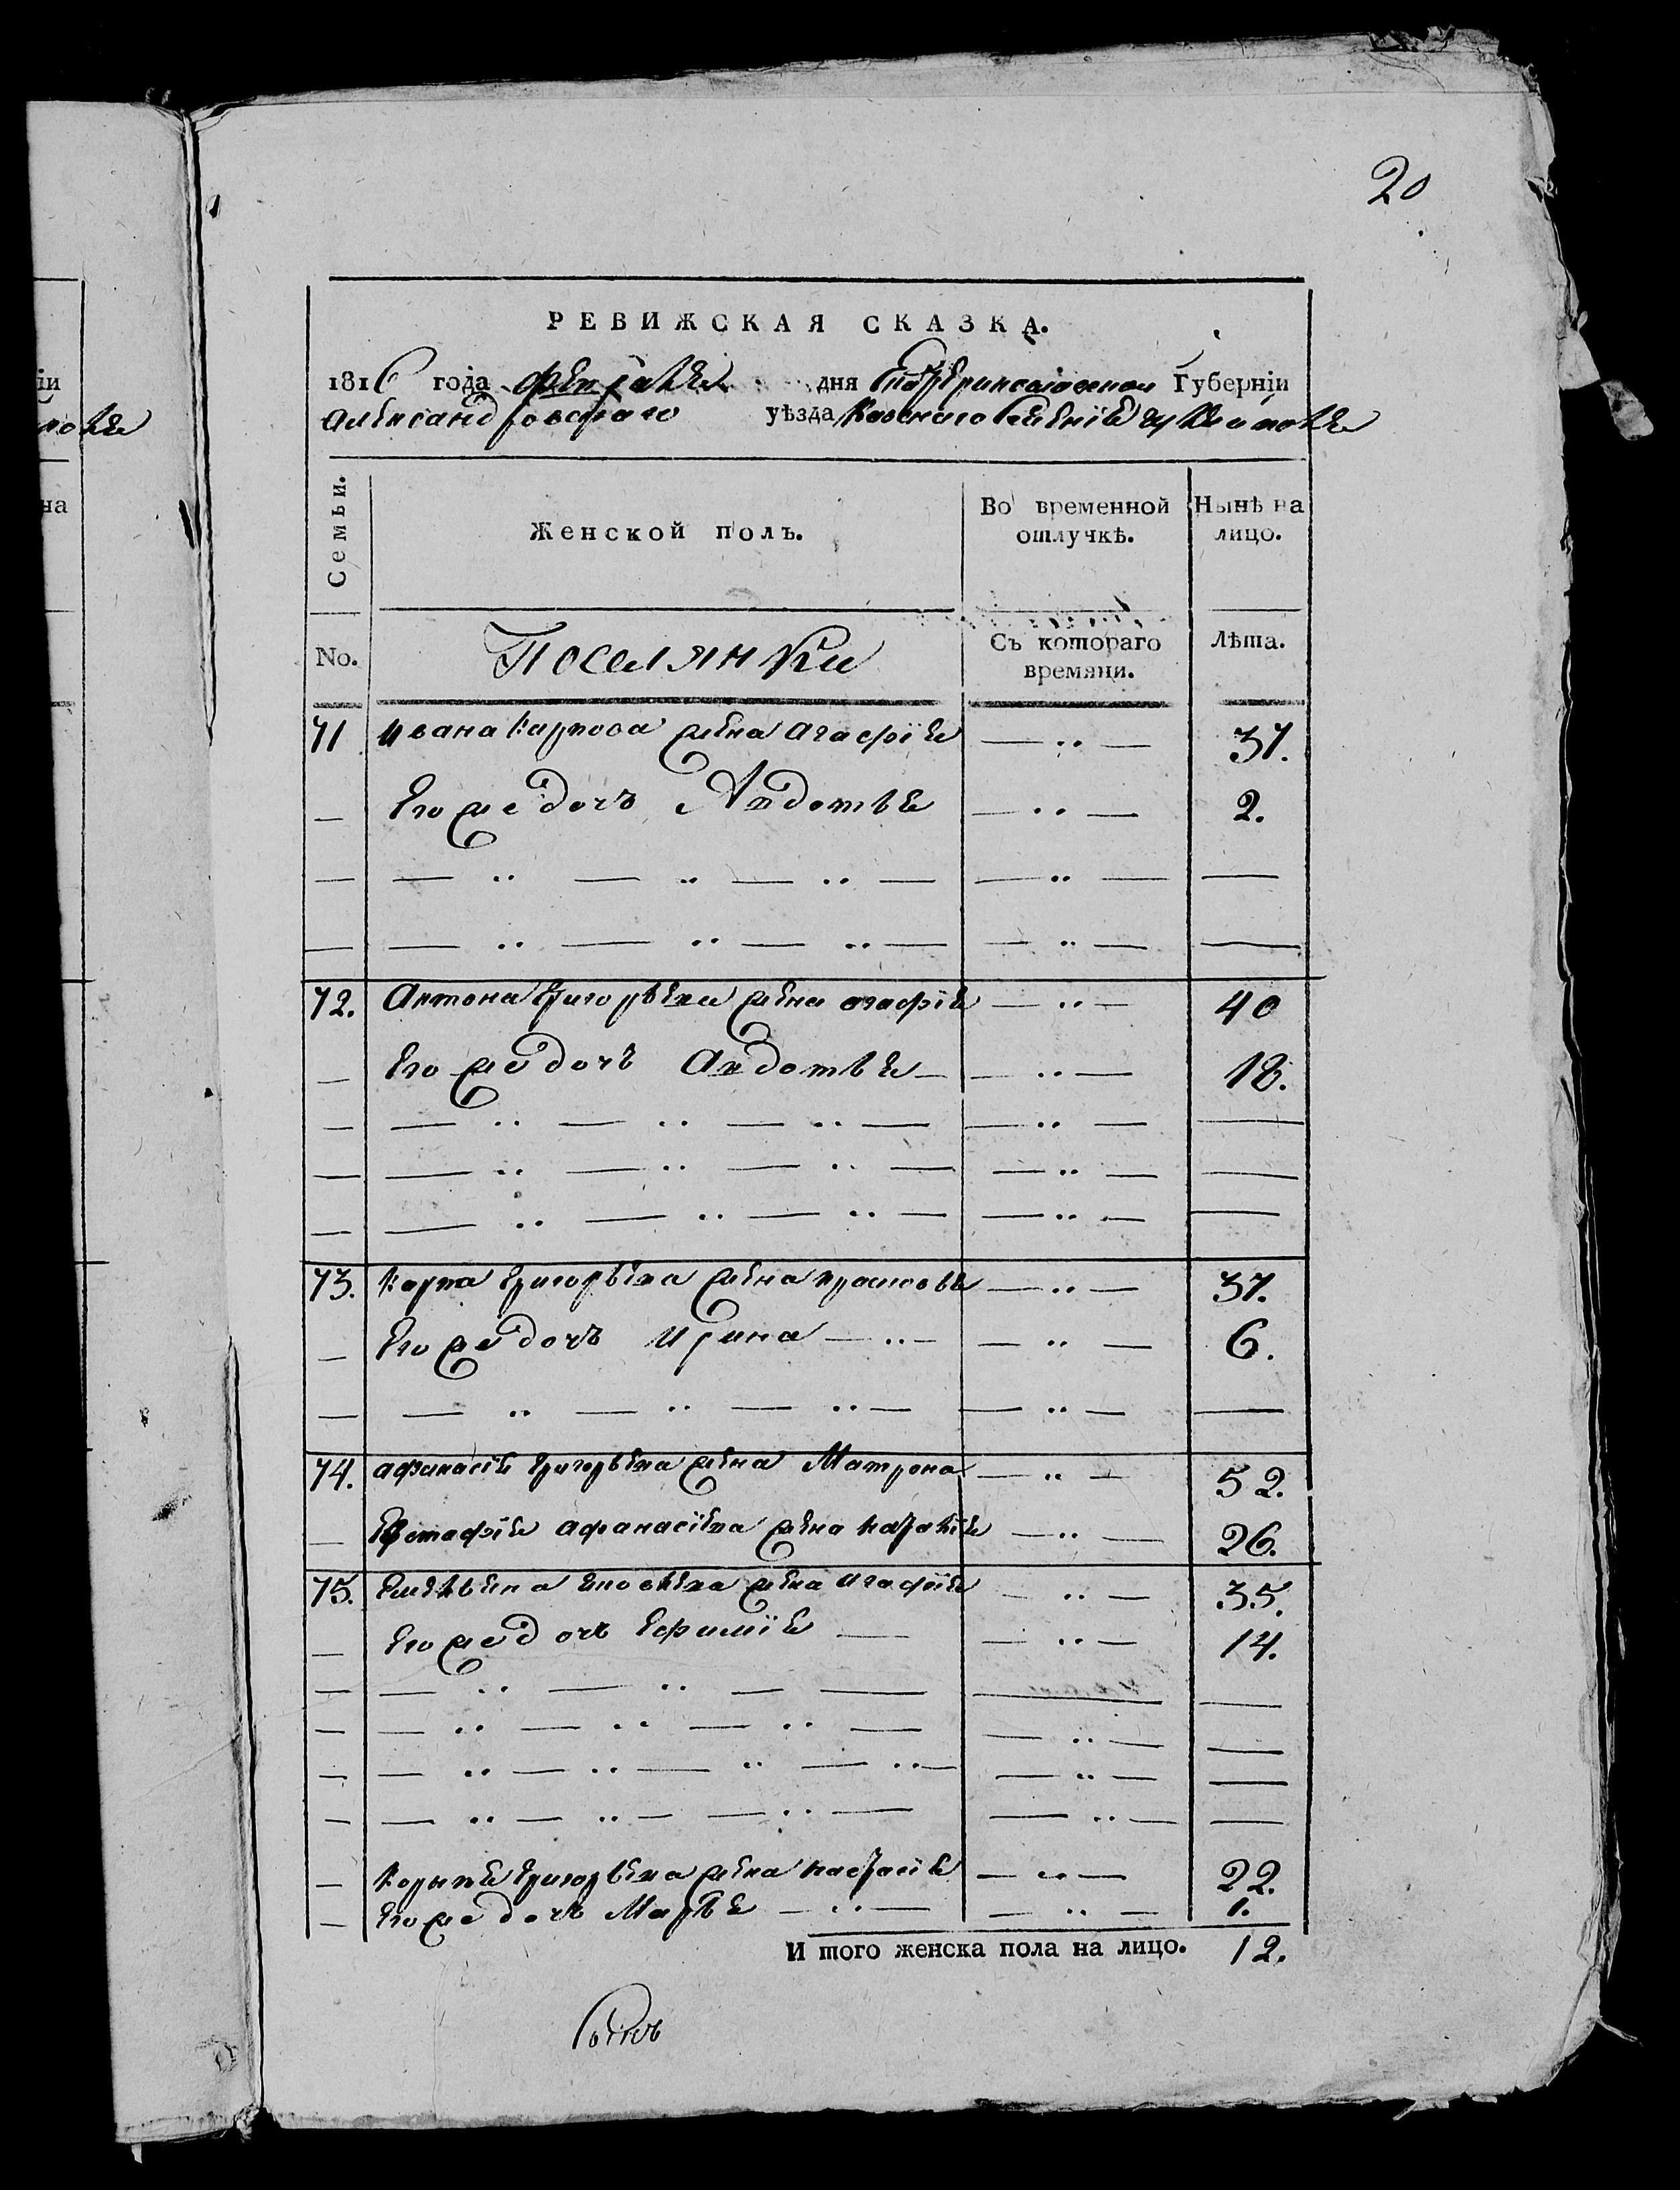 20
РЕВИЖСКАЯ СКАЗКА.
1816 года февраля дня Екатеринославской Губерніи
Александровскаго уѣзда Казеннаго Селенія
Семьи.
Женской полъ.
Во временной отлучкѣ.
Нынѣ на лицо.
No.
Поселянки
Съ котораго времяни.
Лѣта.
71 Ивана Карпова жена Агафія — .. — 37.
— Его же дочь Авдотья — .. — 2.
72. Антона Григорьева жена Агафія — .. — 40
— Его же дочь Авдотья — .. — 18.
73. Карпа Григорьева жена Прасковья — .. — 37.
— Его же дочь Ирина — .. — 6.
74. Афанасія Григорьева жена Матрона — .. — 52.
— Евстафія Афанасіева жена — .. — 26.
75. жена Агафія — .. — 35.
— Его же дочь Ефимія — .. — 14.
— Корнея Григорьева жена Настасія — .. — 22.
— Его же дочь Марья — .. — 1.
И того женска пола на лицо. 12.